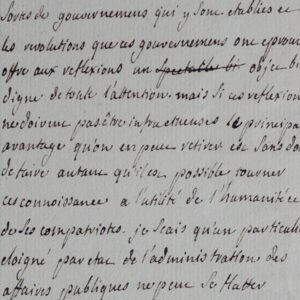 sortes de gouvernemens qui y sont etablies et
les revolutions que ces gouvernemens ont eprouvé
offre aux reflexions un spectable bi objet bi
digne de toute l'attention. mais si ces reflexions
ne doivent pas être infructueuses le principal
avantage qu'on en peut retirer est sans dou
de faire autant qu'il est possible tourner
ces connoissance a l'utilité de l'humanité et
de ses compatriotes. je scais qu'un particulie
eloigné par etat de l'administration des
affaires publiques ne peut se flatter